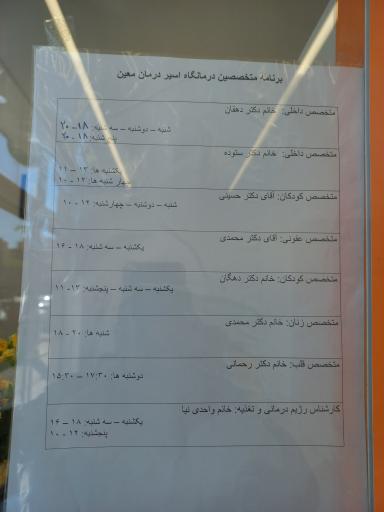 برنامه متخصصین درمانگاه اسپر درمان معین
متخصص داخلی: خانم دکتر دهقان
شنبه – دوشنبه – سه شنبه: ۱۸ – ۲۰
پنج شنبه: ۱۸ – ۲۰
متخصص داخلی: خانم دکتر ستوده
یکشنبه ها: ۱۳ – ۱۱
چهار شنبه ها: ۱۲ – ۱۰
متخصص کودکان: آقای دکتر حسینی
شنبه – دوشنبه – چهارشنبه: ۱۲ – ۱۰
متخصص عفونی: آقای دکتر محمدی
یکشنبه: ۱۸ – ۱۶
متخصص کودکان: خانم دکتر دهگان
یکشنبه – سه شنبه – پنجشنبه: ۱۳ – ۱۱
متخصص زنان: خانم دکتر محمدی
شنبه ها: ۲۰ – ۱۸
متخصص قلب: خانم دکتر رحمانی
دوشنبه ها: ۱۷:۳۰ – ۱۵:۳۰
کارشناس رژیم درمانی و تغذیه: خانم واحدی نیا
یکشنبه – سه شنبه: ۱۸ – ۱۶
پنجشنبه: ۱۲ – ۱۰